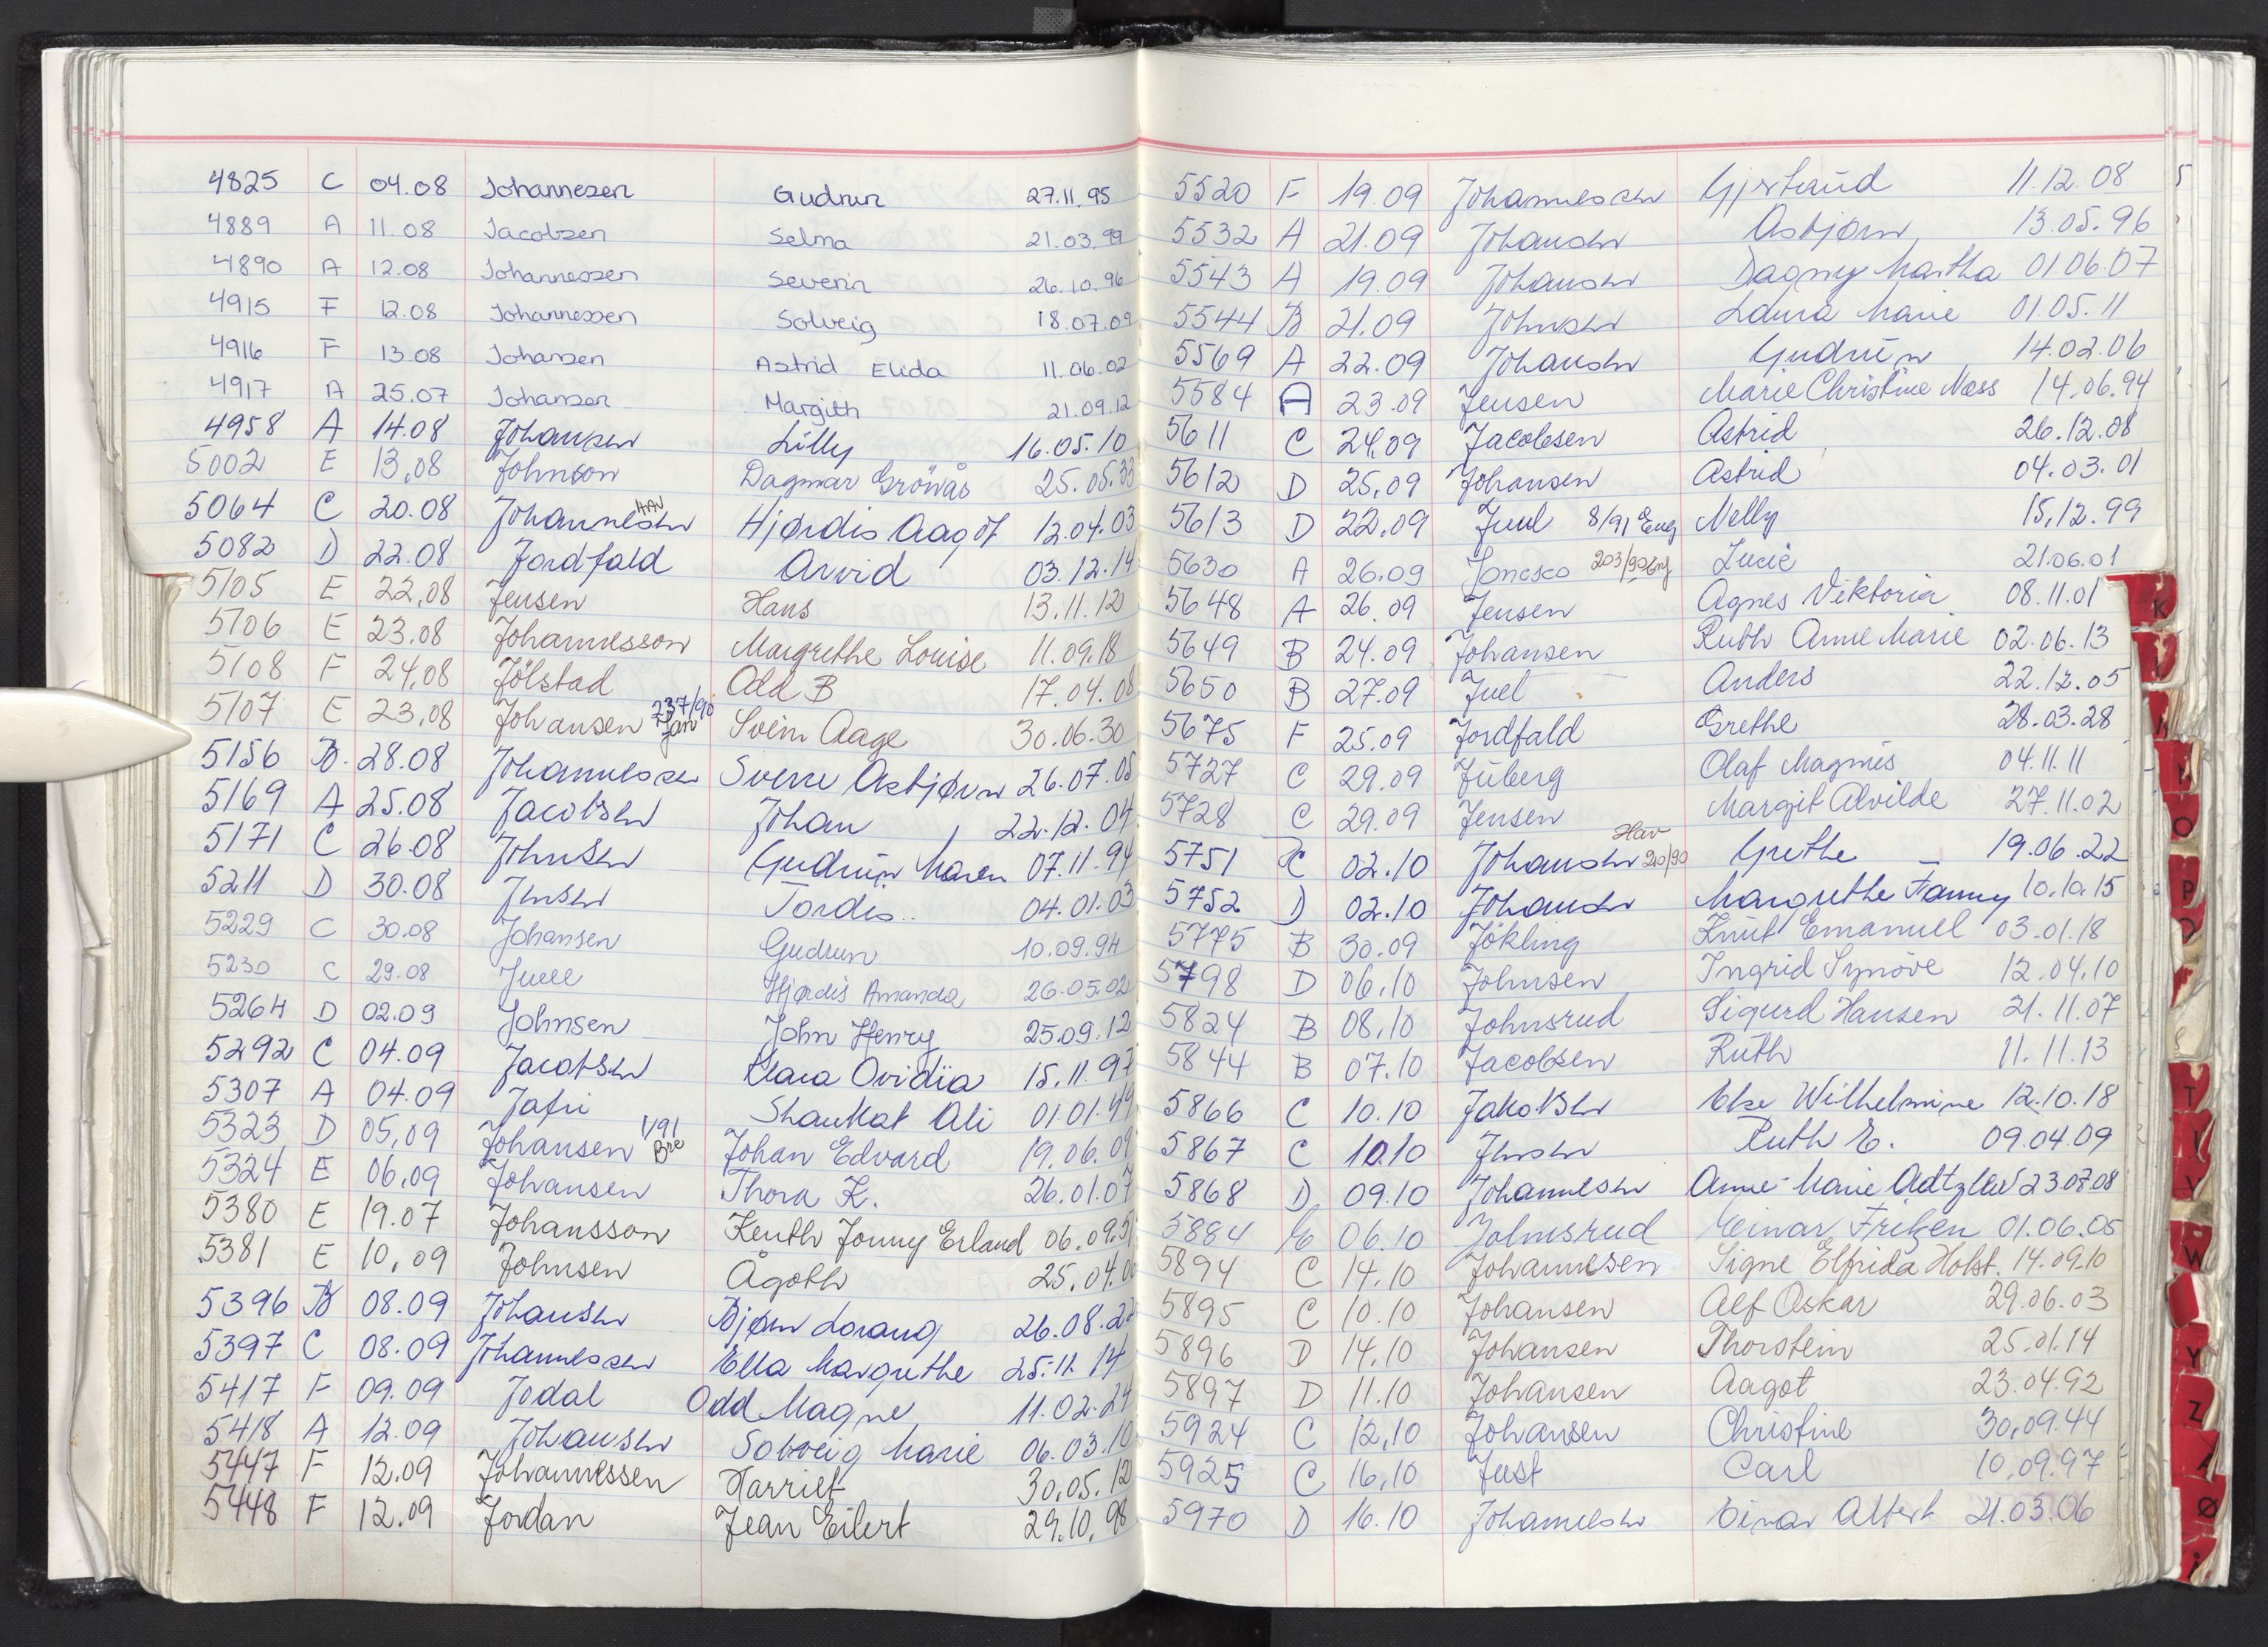 4825 C 04.08 Johannesen Gudrun 27.11.95
4889 A 11.08 Jacobsen Selma 21.03.99
4890 A 12.08 Johannessen Severin 26.10.96
4915 F 12.08 Johannessen Solveig 18.07.09
4916 F 13.08 Johansen Astrid Elida 11.06.02
4917 A 25.07 Johansen Margith 21.09.12
4958 A 14.08 Johansen Lilly 16.05.10
5002 E 13.08 Johnson Dagmar Grönås 25.05.33
5064 C 20.08 Johannesen Hjørdis Aagot 12.04.03
5082 D 22.08 Jordfald Arvid 03.12.14
5105 E 22.08 Jensen Hans 13.11.12
5106 E 23.08 Johannesson Margrethe Louise 11.09.18
5108 F 24.08 Jölstad Odd B 17.04.08
5107 E 23.08 Johansen 237/90 Jan Svein Aage 30.06.30
5156 B. 28.08 Johannessen Sverre Asbjørn 26.07.05
5169 A 25.08 Jacobsen Johan 22.12.04
5171 C 26.08 Johnsen Gudrun Maren 07.11.94
5211 D 30.08 Jensen Tordis 04.01.03
5229 C 30.08 Johansen Gudrun 10.09.94
5230 C 29.08 Juell Hjørdis Amanda 26.05.02
5264 D 02.09 Johnsen John Henry 25.09.12
5292 C 04.09 Jacobsen Klara Ovidia 15.11.97
5307 A 04.09 Jafri Shaukat Ali 01.01.49
5323 D 05.09 Johansen 1/91 Bre Johan Edvard 19.06.09
5324 E 06.09 Johansen Thora K. 26.01.07
5380 E 19.07 Johansson Kenth Jonny Erland 06.09.5
5381 E 10.09 Johnsen Ågoth 25.04.0
5396 B 08.09 Johansen Bjørn Lorang 26.08.22
5397 C 08.09 Johannessen Ella Margrethe 25.11.14
5417 F 09.09 Jodal Odd Magne 11.02.24
5418 A 12.09 Johansen Solveig Marie 06.03.10
5447 F 12.09 Johannessen Harriet 30.05.12
5448 F 12.09 Jordan Jean Eilert 29.10.98
5520 F 19.09 Johannessen Gjertrud 11.12.08
5532 A 21.09 Johansen Asbjørn 13.05.96
5543 A 19.09 Johansen Dagny Martha 01.06.07
5544 B 21.09 Johnsen Laura Marie 01.05.11
5569 A 22.09 Johansen Gudrun 14.02.06
5584 A 23.09 Jensen Marie Christine Næss 14.06.94
5611 C 24.09 Jacobsen Astrid 26.12.08
5612 D 25.09 Johansen Astrid 04.03.01
5613 D 22.09 Juul 8/91 Eng Nelly 15.12.99
5630 A 26.09 Jonesco 203/90 Eng Lucie 21.06.01
5648 A 26.09 Jensen Agnes Viktoria 08.11.01
5649 B 24.09 Johansen Ruth Anne Marie 02.06.13
5650 B 27.09 Juel Anders 22.12.05
5675 F 25.09 Jordfald Grethe 28.03.28
5727 C 29.09 Juberg Olaf Magnus 04.11.11
5728 C 29.09 Jensen Margit Alvilde 27.11.02
5751 C 02.10 Johansen Hav 210/90 Grethe 19.06.22
5752 D 02.10 Johansen Margrethe Fanny 10.10.15
5775 B 30.09 Jökling Knut Emanuel 03.01.18
5798 D 06.10 Johnsen Ingrid Synöve 12.04.10
5824 B 08.10 Johnsrud Sigurd Hansen 21.11.07
5844 B 07.10 Jacobsen Ruth 11.11.13
5866 C 10.10 Jakobsen Else Wilhelmine 12.10.18
5867 C 10.10 Jensen Ruth E. 09.04.09
5868 D 09.10 Johannesen Anne-Marie 23.07.08
5884 E 06.10 Johnsrud Einar 01.06.05
5894 C 14.10 Johannesen Signe Elfrida Holst 14.09.10
5895 C 10.10 Johansen Alf Oskar 29.06.03
5896 D 14.10 Johansen Thorstein 25.01.14
5897 D 11.10 Johansen Aagot 23.04.92
5924 C 12.10 Johansen Christine 30.09.44
5925 C 16.10 Just Carl 10.09.97
5970 D 16.10 Johannesen Einar Albert 21.03.06
K
O
P
T
V
W
Y
Z
Ø